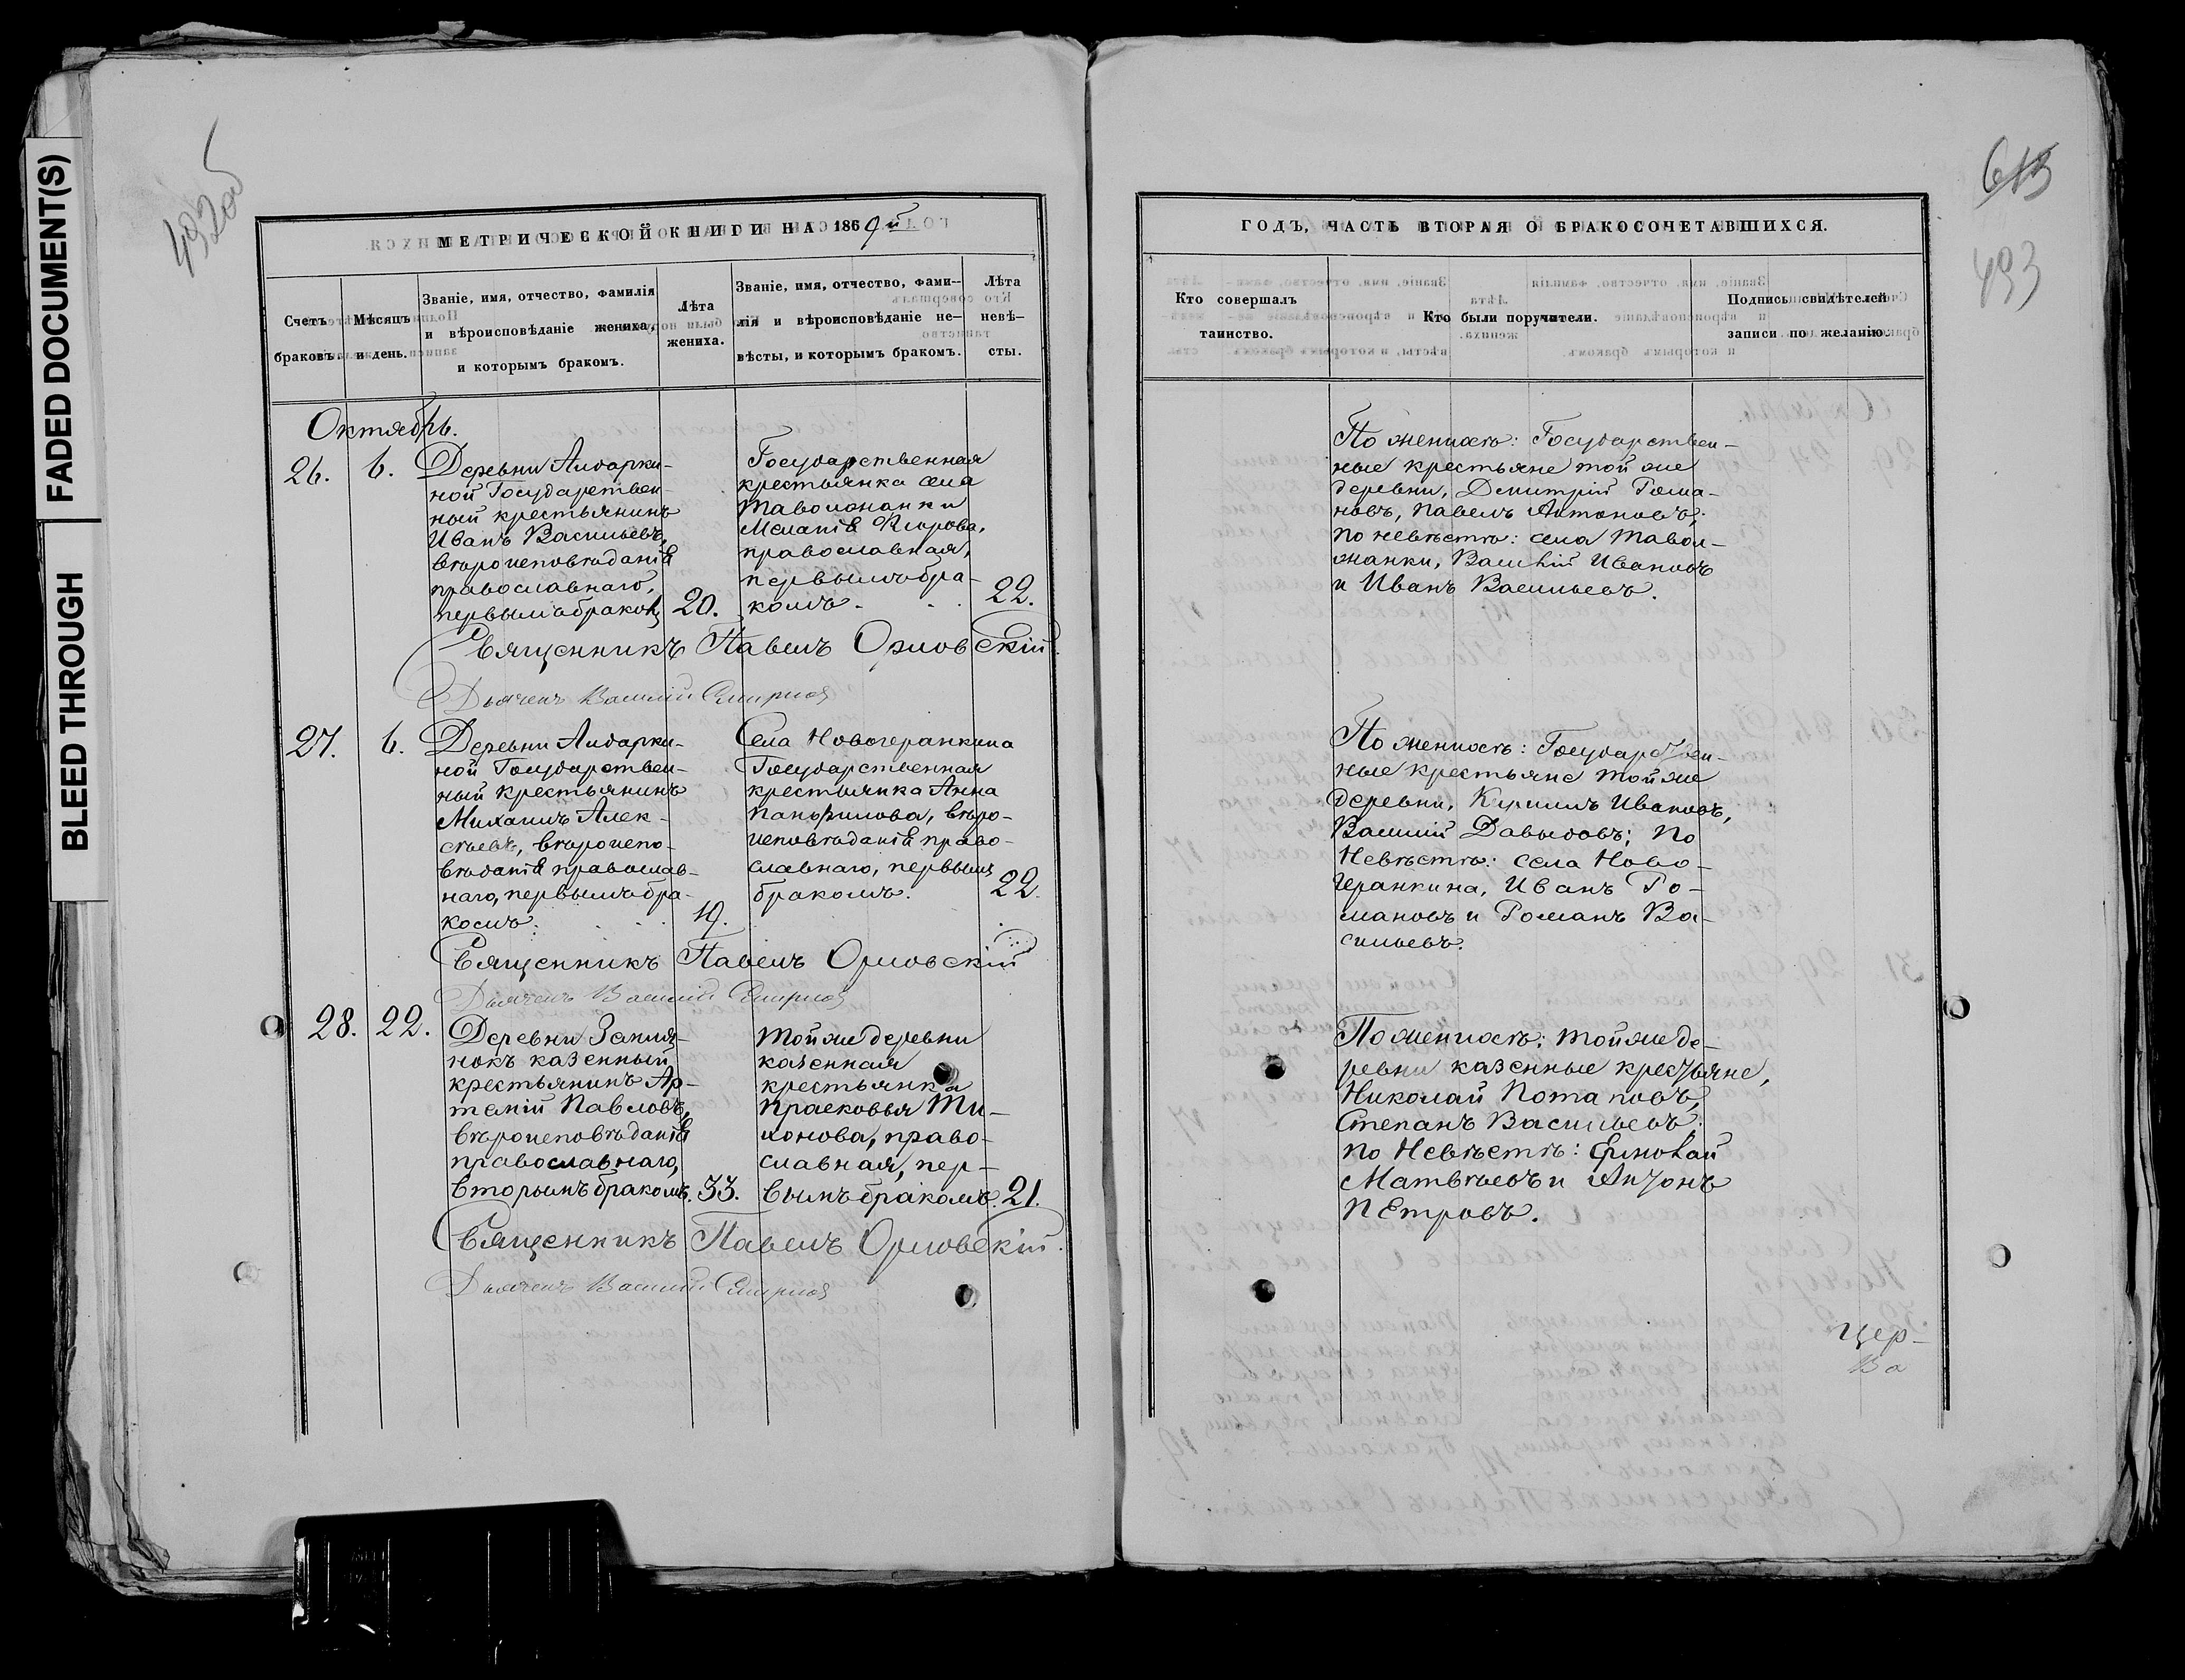 FADED DOCUMENT(S)
BLEED THROUGH
492об
МЕТРИЧЕСКОЙ КНИГИ НА 1869й
Счетъ браковъ.
Мѣсяцъ и день.
Званіе, имя, отчество, фамилія
и вѣроисповѣданіе жениха,
и которымъ бракомъ.
Лѣта
жениха.
Званіе, имя, отчество, фами-
лія и вѣроисповѣданіе не-
вѣсты, и которымъ бракомъ.
Лѣта
невѣ-
сты.
Октябрь.
26. 6.
Деревни Аидарки-
ной Государствен-
ный крестьянинъ
Иванъ Васильевъ,
вѣроисповѣданія
православнаго,
первымъ бракомъ 20.
Государственная
крестьянка села
Таволжанки
Меланія Егорова,
православная,
первымъ бра-
комъ. 22.
Священникъ Павелъ Орловскій.
Дьячекъ Василій Смирнов
27. 6.
Деревни Аидарки-
ной Государствен-
ный крестьянинъ
Михаилъ Алек-
сѣевъ, вѣроиспо-
вѣданія православ-
наго, первымъ бра-
комъ. 19.
Села Новогеранкина
Государственная
крестьянка Анна
Панфилова, вѣро-
исповѣданія право-
славнаго, первымъ
бракомъ. 22.
Священникъ Павелъ Орловскій
Дьячекъ Василій Смирнов
28. 22.
Деревни
нокъ казенный
крестьянинъ Ар-
темій Павловъ,
вѣроисповѣданія
православнаго,
вторымъ бракомъ. 33.
Той же деревни
казенная
крестьянка
Прасковья Ти-
хонова, право-
славная, пер-
вымъ бракомъ. 21.
Священникъ Павелъ Орловскій.
Дьячекъ Василій Смирнов
613
493
ГОДЪ, ЧАСТЬ ВТОРАЯ О БРАКОСОЧЕТАВШИХСЯ.
Кто совершалъ
таинство.
Кто были поручители.
Подпись свидѣтелей
записи по желанію.
По женихѣ: Государствен-
ные крестьяне той же
деревни, Димитрій Рома-
новъ, Павелъ Антоновъ;
по невѣстѣ: села Тавол-
жанки, Василій Ивановъ
и Иванъ Васильевъ.
По женихѣ: Государствен-
ные крестьяне той же
деревни, Кириллъ Ивановъ,
Василій Давыдовъ; по
Невѣстѣ: села Ново-
геранкина, Иванъ Ро-
мановъ и Романъ Ва-
сильевъ.
По женихѣ: той же де-
ревни казенные крестьяне,
Николай Потаповъ,
Степанъ Васильевъ:
по Невѣстѣ: Ермолай
Матвѣевъ и Антонъ
Петровъ.
Цер-
ва